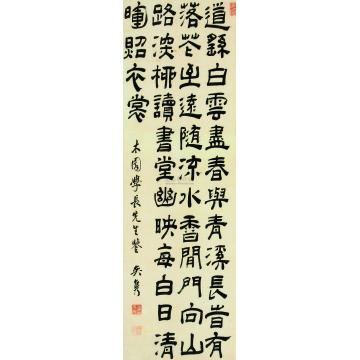 道繇白雲盡春與青溪長旹有
落花至遠隨流水香閒門向山
路深桺讀書堂幽映每白日清
暉照衣裳
木園學長先生鑒